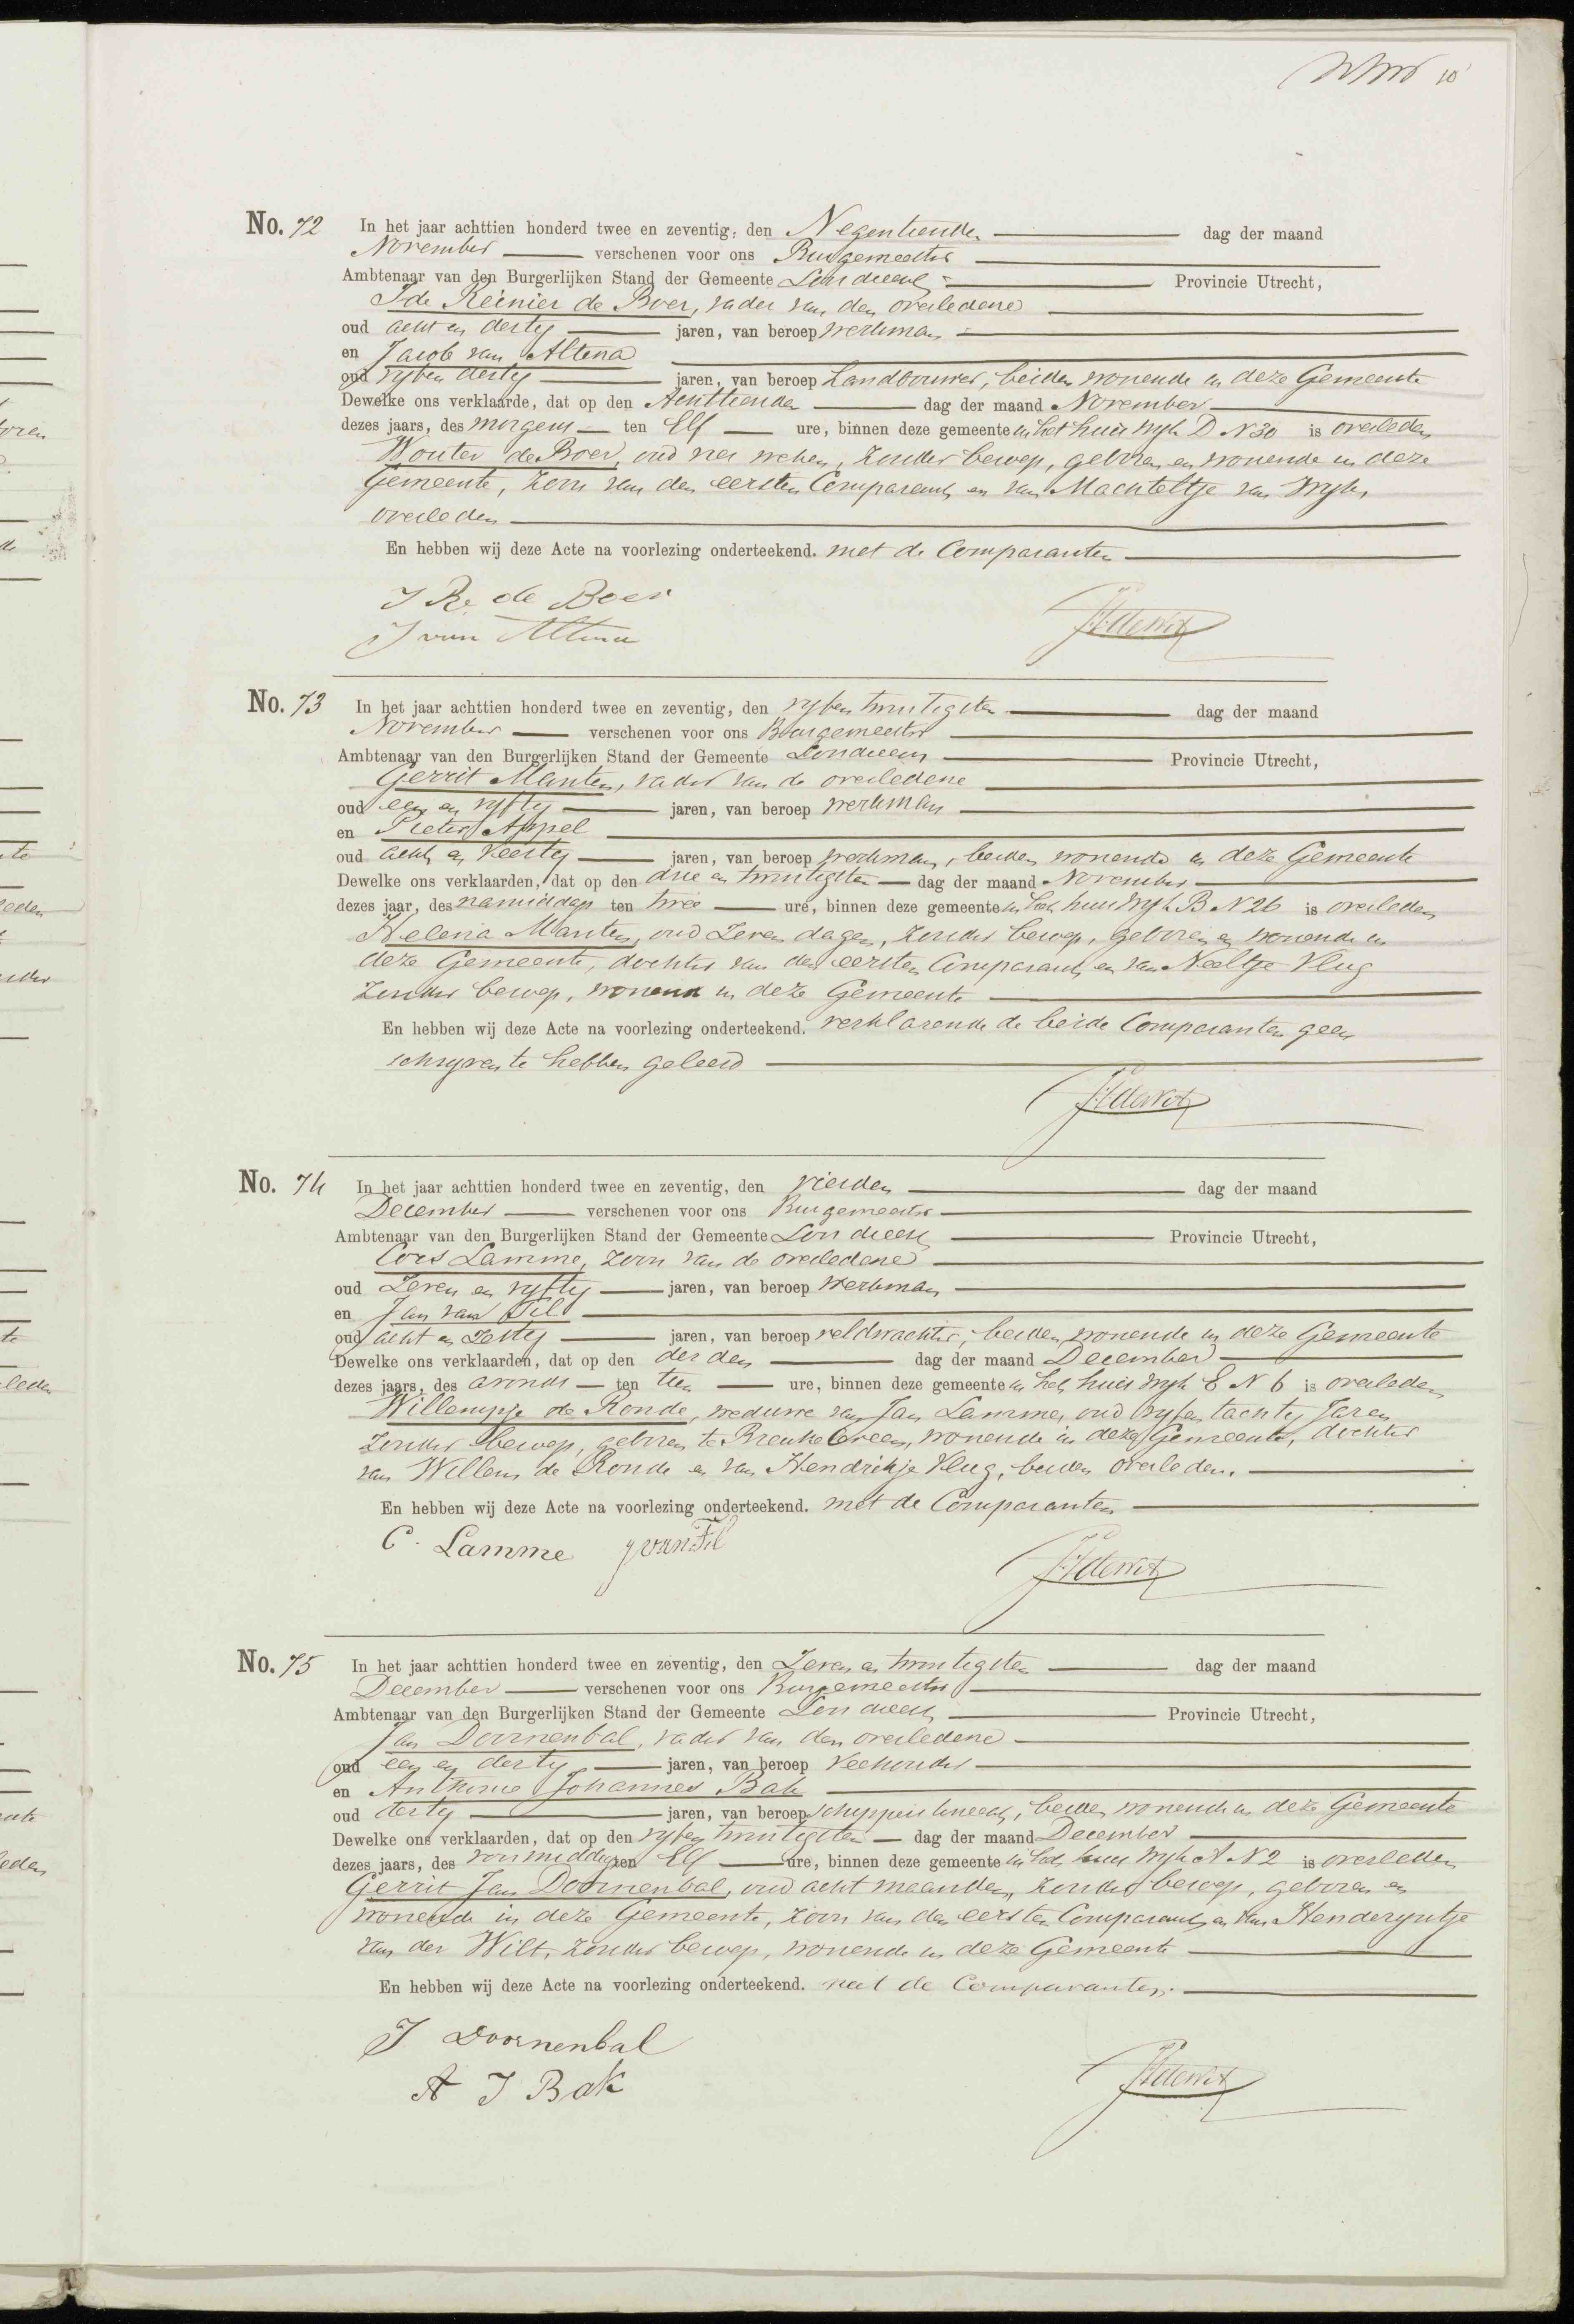 10
No. 72 In het jaar achttien honderd twee en zeventig, den Negentienden dag der maand
November verschenen voor ons Burgemeester
Ambtenaar van den Burgerlijken Stand der Gemeente Loosdrecht Provincie Utrecht,
Ide Reinier de Boer, vader van den overledene
oud acht en dertig jaren, van beroep werkman
en Jacob van Altena
oud vyf en dertig jaren, van beroep Landbouwer, beiden wonende in deze Gemeente
Dewelke ons verklaarde, dat op den Achttienden dag der maand November
dezes jaars, des morgens ten Elf ure, binnen deze gemeente in het huis Wyk D N 30 is overleden
Wouter de Boer, oud vier weken, zonder beroep, geboren en wonende in deze
Gemeente, zoon van den eersten Comparant en van Machteltje van Wyk,
overleden
En hebben wij deze Acte na voorlezing onderteekend. met de Comparanten
J R. de Boer
J van Altena
No. 73 In het jaar achttien honderd twee en zeventig, den vyf en twintigsten dag der maand
November verschenen voor ons Burgemeester
Ambtenaar van den Burgerlijken Stand der Gemeente Loosdrecht Provincie Utrecht,
Gerrit Manten, vader van de overledene
oud een en vyftig jaren, van beroep werkman
en Pieter Appel
oud acht en veertig jaren, van beroep werkman, beiden wonende in deze Gemeente
Dewelke ons verklaarden, dat op den drie en twintigsten dag der maand November
dezes jaar, des namiddags ten twee ure, binnen deze gemeente in het huis Wyk B N 26 is overleden
Helena Manten, oud Zeven dagen, zonder beroep, geboren en wonende in
deze Gemeente, dochter van den eersten Comparant en van Neeltje Vlug
zonder beroep, wonende in deze Gemeente
En hebben wij deze Acte na voorlezing onderteekend. verklarende de beide Comparanten geen
schryven te hebben geleerd
No. 74 In het jaar achttien honderd twee en zeventig, den vierden dag der maand
December verschenen voor ons Burgemeester
Ambtenaar van den Burgerlijken Stand der Gemeente Loosdrecht Provincie Utrecht,
Cors Lamme, zoon van de overledene
oud Zeven en vyftig jaren, van beroep werkman
en Jan van Fil
oud acht en zestig jaren, van beroep veldwachter, beiden wonende in deze Gemeente
Dewelke ons verklaarden, dat op den derden dag der maand December
dezes jaars, des avonds ten tien ure, binnen deze gemeente in het huis Wyk E N 6 is overleden
Willempje de Ronde, weduwe van Jan Lamme, oud vyf en tachtig Jaren
zonder beroep, geboren te Breukeleveen, wonende in deze Gemeente, dochter
van Willem de Ronde en van Hendrikje Vlug, beiden overleden.
En hebben wij deze Acte na voorlezing onderteekend. met de Comparanten
C. Lamme J van Fil
No. 75 In het jaar achttien honderd twee en zeventig, den Zeven en twintigsten dag der maand
December verschenen voor ons Burgemeester
Ambtenaar van den Burgerlijken Stand der Gemeente Loosdrecht Provincie Utrecht,
Jan Doornenbal, vader van den overledene
oud een en dertig jaren, van beroep Veehouder
en Anthonie Johannes Bak
oud dertig jaren, van beroep schippersknecht, beiden wonende in deze Gemeente
Dewelke ons verklaarden, dat op den vyf en twintigsten dag der maand December
dezes jaars, des voormiddags ten Elf ure, binnen deze gemeente in het huis Wyk A N 2 is overleden
Gerrit Jan Doornenbal, oud acht maanden, zonder beroep, geboren en
wonende in deze Gemeente, zoon van den eersten Comparant en van Henderyntje
van der Wilt, zonder beroep, wonende in deze Gemeente
En hebben wij deze Acte na voorlezing onderteekend. met de Comparanten.
J Doornenbal
A J Bak